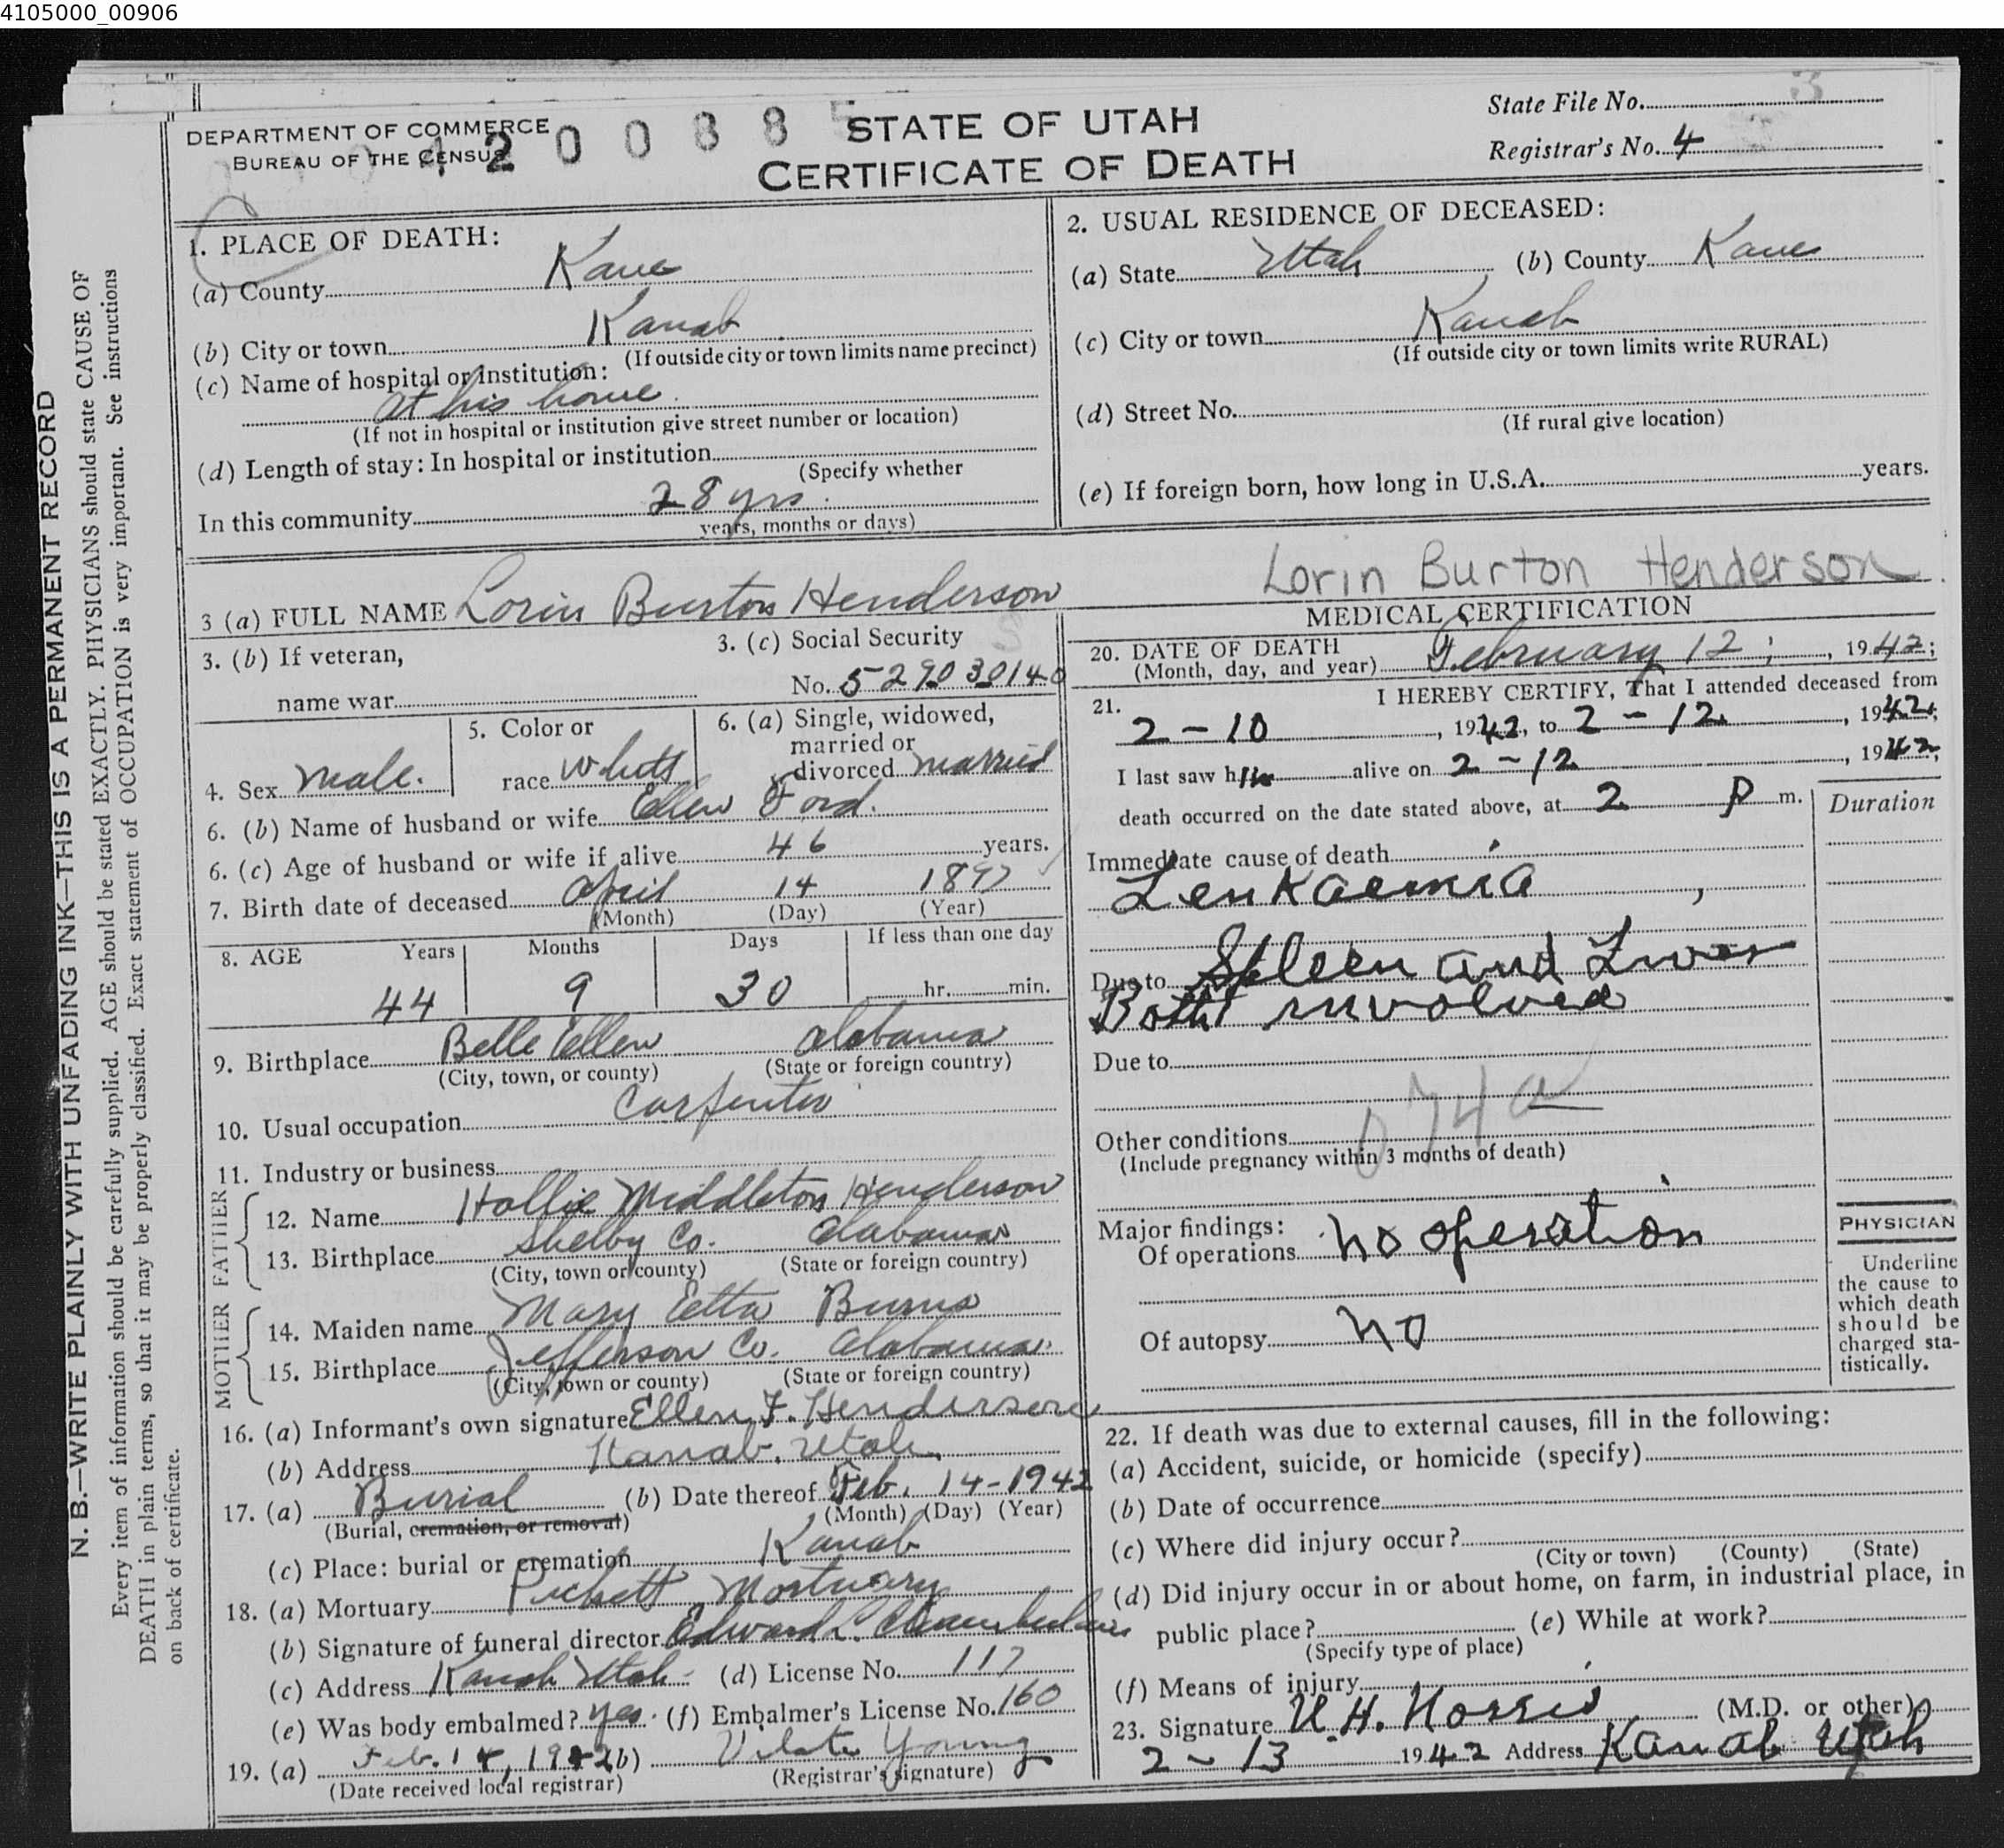 4105000_00906
DEPARTMENT OF COMMERCE
BUREAU OF THE CENSUS
42 0 0 8 8 5
STATE OF UTAH
CERTIFICATE OF DEATH
State File No. 3
Registrar's No. 4
1. PLACE OF DEATH:
(a) County Kane
(b) City or town Kanab
(If outside city or town limits name precinct)
(c) Name of hospital or institution:
at his home
(If not in hospital or institution give street number or location)
(d) Length of stay: In hospital or institution
(Specify whether
In this community 28 yrs.
years, months or days)
2. USUAL RESIDENCE OF DECEASED:
(a) State Utah (b) County Kane
(c) City or town Kanab
(If outside city or town limits write RURAL)
(d) Street No.
(If rural give location)
(e) If foreign born, how long in U.S.A. years.
3 (a) FULL NAME Lorin Burton Henderson
3. (b) If veteran,
name war
3. (c) Social Security
No. 529030140
4. Sex Male.
5. Color or
race White
6. (a) Single, widowed,
married or
divorced married
6. (b) Name of husband or wife Ellen Ford.
6. (c) Age of husband or wife if alive 46 years.
7. Birth date of deceased April 14 1897
(Month) (Day) (Year)
8. AGE Years Months Days If less than one day
44 9 30 hr. min.
9. Birthplace Belle Ellen Alabama
(City, town, or county) (State or foreign country)
10. Usual occupation Carpenter
11. Industry or business
FATHER
12. Name Hollie Middleton Henderson
13. Birthplace Shelby Co. Alabama
(City, town or county) (State or foreign country)
MOTHER
14. Maiden name Mary Etta Burns
15. Birthplace Jefferson Co. Alabama.
(City, town or county) (State or foreign country)
16. (a) Informant's own signature Ellen F. Henderson
(b) Address Kanab. Utah.
17. (a) Burial (b) Date thereof Feb. 14-1942
(Burial, cremation, or removal) (Month) (Day) (Year)
(c) Place: burial or cremation Kanab
18. (a) Mortuary Mortuary
(b) Signature of funeral director Edward L. Chamberlain
(c) Address Kanab Utah- (d) License No. 117
(e) Was body embalmed? yes. (f) Embalmer's License No. 160
19. (a) Feb. 14, 1942 (b) Vilate Young
(Date received local registrar) (Registrar's signature)
Lorin Burton Henderson
MEDICAL CERTIFICATION
20. DATE OF DEATH
(Month, day, and year) February 12; , 1942;
21. I HEREBY CERTIFY, That I attended deceased from
2-10 , 1942, to 2-12 , 1942;
I last saw him alive on 2-12 , 1942;
death occurred on the date stated above, at 2 P m.
Duration
Immediate cause of death
Leukaemia ,
Due to Spleen and Liver
Both involved
Due to
074a
Other conditions
(Include pregnancy within 3 months of death)
Major findings:
Of operations no operation
Of autopsy no
PHYSICIAN
Underline
the cause to
which death
should be
charged sta-
tistically.
22. If death was due to external causes, fill in the following:
(a) Accident, suicide, or homicide (specify)
(b) Date of occurrence
(c) Where did injury occur?
(City or town) (County) (State)
(d) Did injury occur in or about home, on farm, in industrial place, in
public place? (e) While at work?
(Specify type of place)
(f) Means of injury
23. Signature H. Norris (M.D. or other)
2-13 1942 Address Kanab Utah
N. B.—WRITE PLAINLY WITH UNFADING INK—THIS IS A PERMANENT RECORD
Every item of information should be carefully supplied. AGE should be stated EXACTLY. PHYSICIANS should state CAUSE OF
DEATH in plain terms, so that it may be properly classified. Exact statement of OCCUPATION is very important. See instructions
on back of certificate.